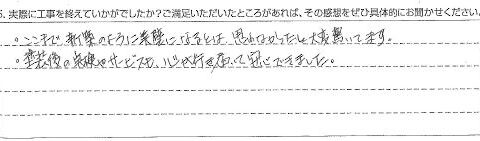 5. 実際に工事を終えていかがでしたか？ご満足いただいたところがあれば、その感想をぜひ具体的にお聞かせください。
・ここまで、新築のように綺麗になるとは、思わなかったし大変驚いてます。
・塗装後の点検やサービスも、心が行き届いて安心できました。